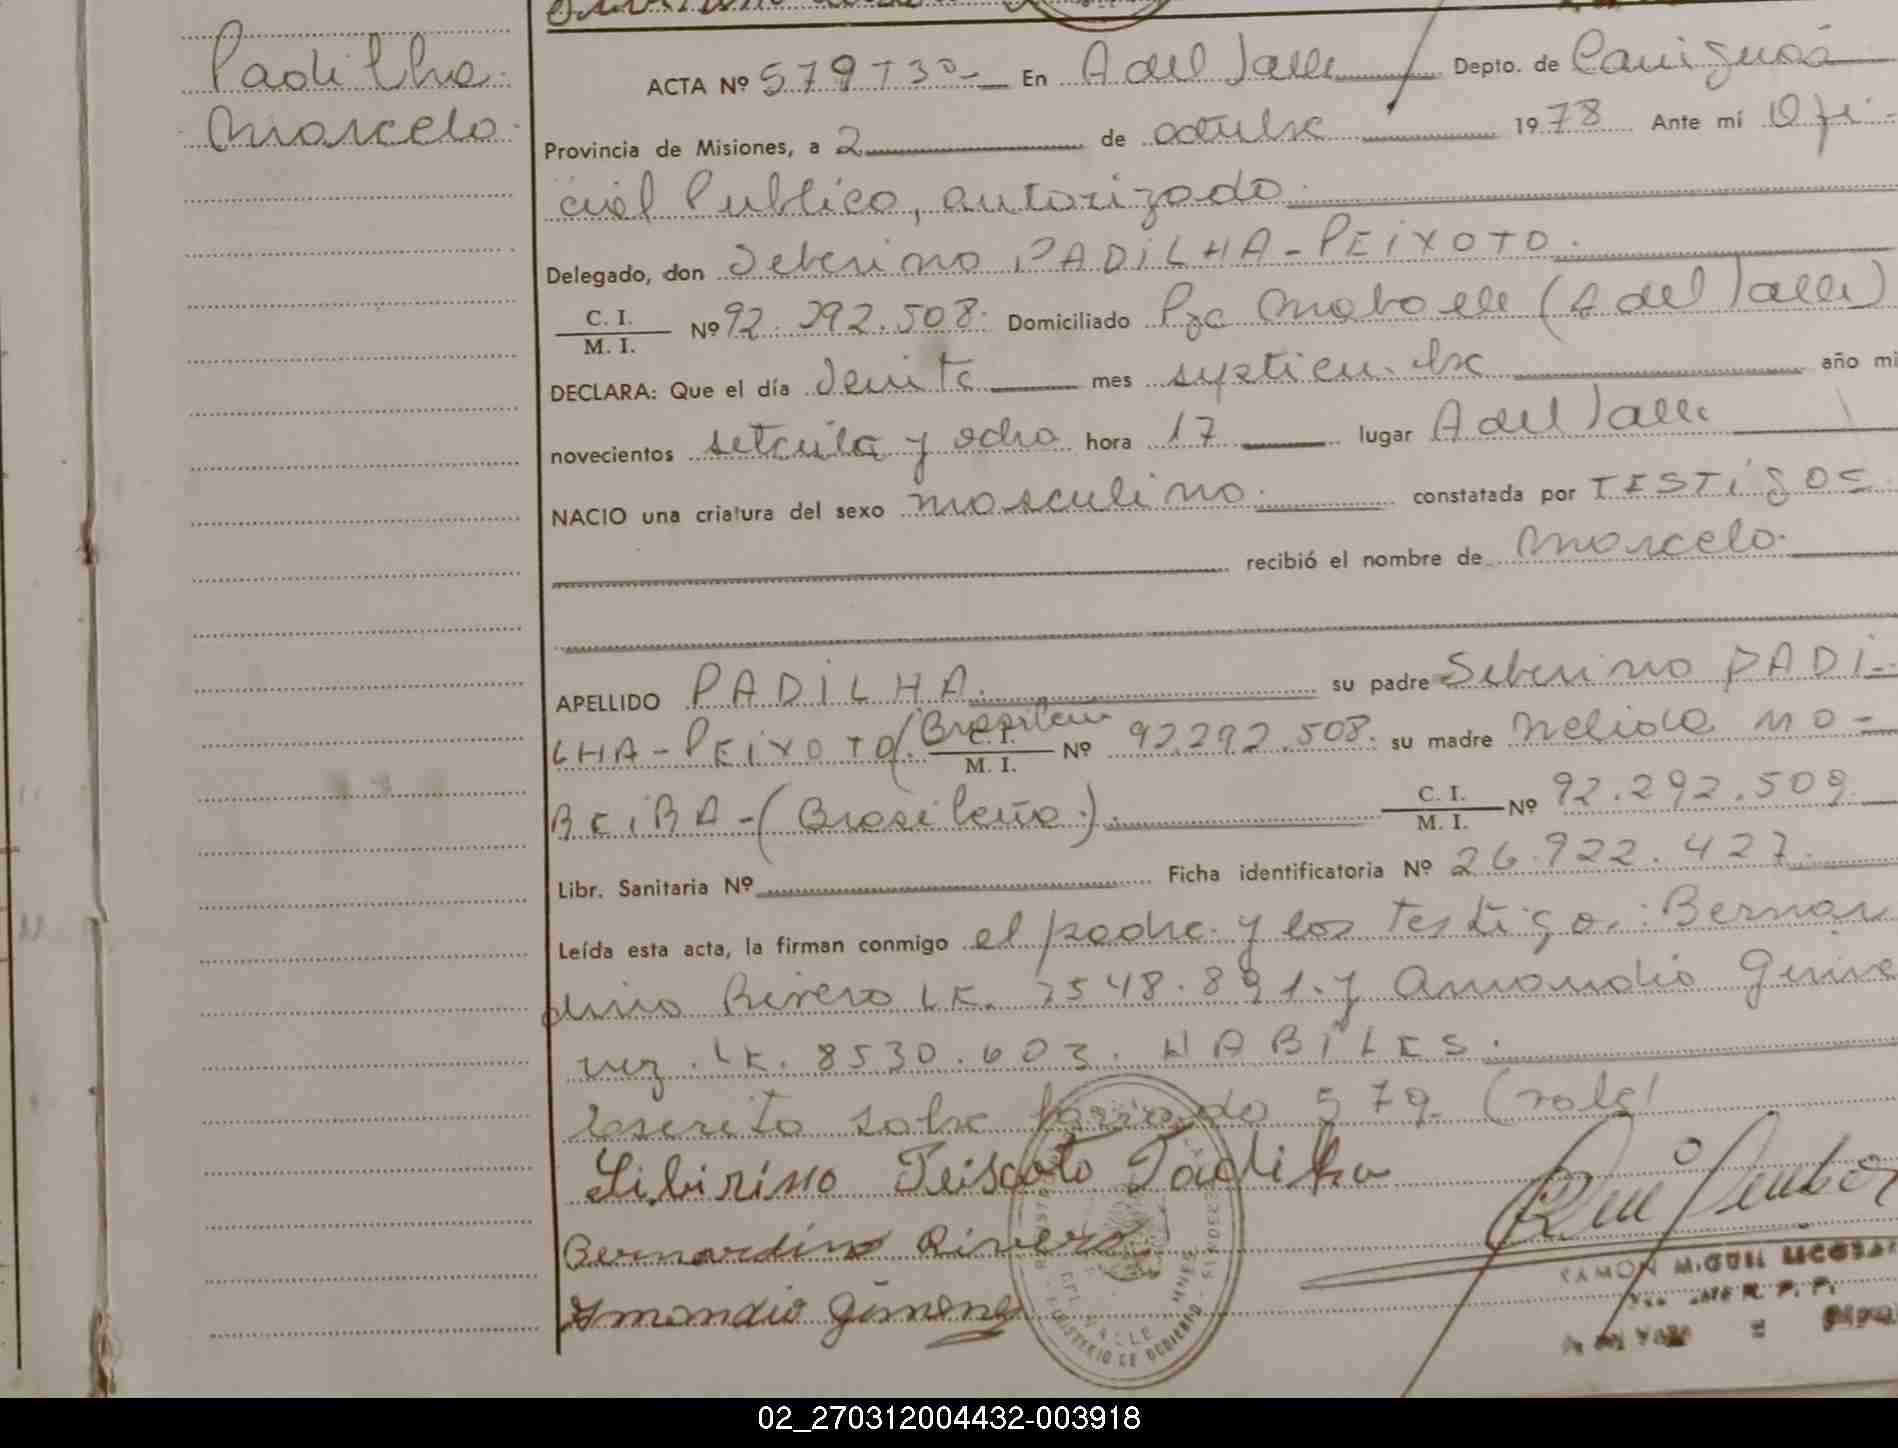 Padilha.
Marcelo.
ACTA Nº 579 T 3º - En A del Valle Depto. de Cainguás
Provincia de Misiones, a 2 de octubre 1978 Ante mí Ofi-
cial Publico, autorizado.
Delegado, don Seberino PADiLHA-PEiXOTO.
C. I. / M. I. Nº 92.292.508. Domiciliado (A del Valle)
DECLARA: Que el día veinte mes septiembre año mi
novecientos setenta y ocho hora 17 lugar A del Valle
NACIO una criatura del sexo masculino. constatada por TESTiGOS
recibió el nombre de Marcelo.
APELLIDO PADiLHA. su padre Seberino PADi-
LHA-PEiXOTO (Brasileño C. I. / M. I. Nº 92.292.508. su madre Nelida
(Brasileña). C. I. / M. I. Nº 92.292.509
Libr. Sanitaria Nº Ficha identificatoria Nº 26.922.427.
Leída esta acta, la firman conmigo el padre y los testigos: Bernar
dino Rivero LE. 7548.891. y Amandio Gime
nez. LE. 8530.603. HABiLES.
Escrito sobre borrado 579 (vale)
Sibirino Peiscoto Padilha
Bernardino Rivero
Amandio Gimenez
RAMON MIGUEL
DEL VALLE MNES
MINISTERIO DE GOBIERNO
02_270312004432-003918